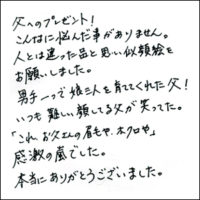 父へのプレゼント!
こんなに悩んだ事がありません。
人とは違った品と思い似顔絵を
お願いしました。
男手一つで娘三人を育てくれた父!
いつも難しい顔してる父が笑ってた。
「これ、お父さんの眉もや、ホクロや」
感激の嵐でした。
本当にありがとうございました。